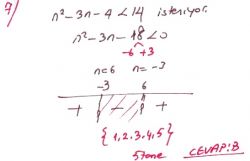 7)
n²-3n-4<14 isteniyor.
n²-3n-18<0
-6 +3
n=6 n=-3
-3 6
+ - +
{1,2,3,4,5}
5 tane CEVAP:B